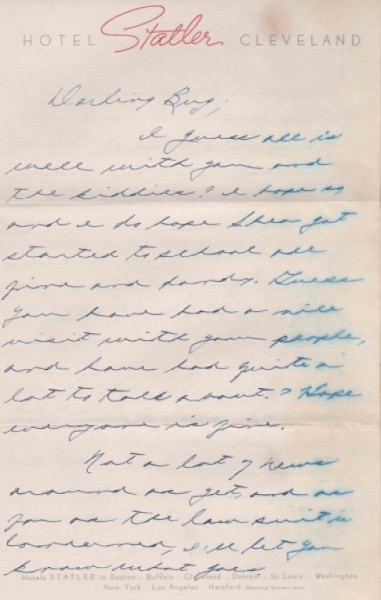 HOTEL Statler CLEVELAND
Darling Bug,
I guess all is
well with you and
the kiddies? I hope so
and I do hope Shea got
started to school all
fine and dandy. Guess
you have had a nice
visit with your people,
and have had quite a
lot to talk about? Hope
everyone is fine.
Not a lot of news
around as yet, and as
far as the law suit is
concerned, I'll let you
know what goes
Hotels STATLER in Boston · Buffalo · Cleveland · Detroit · St. Louis · Washington
New York · Los Angeles · Hartford